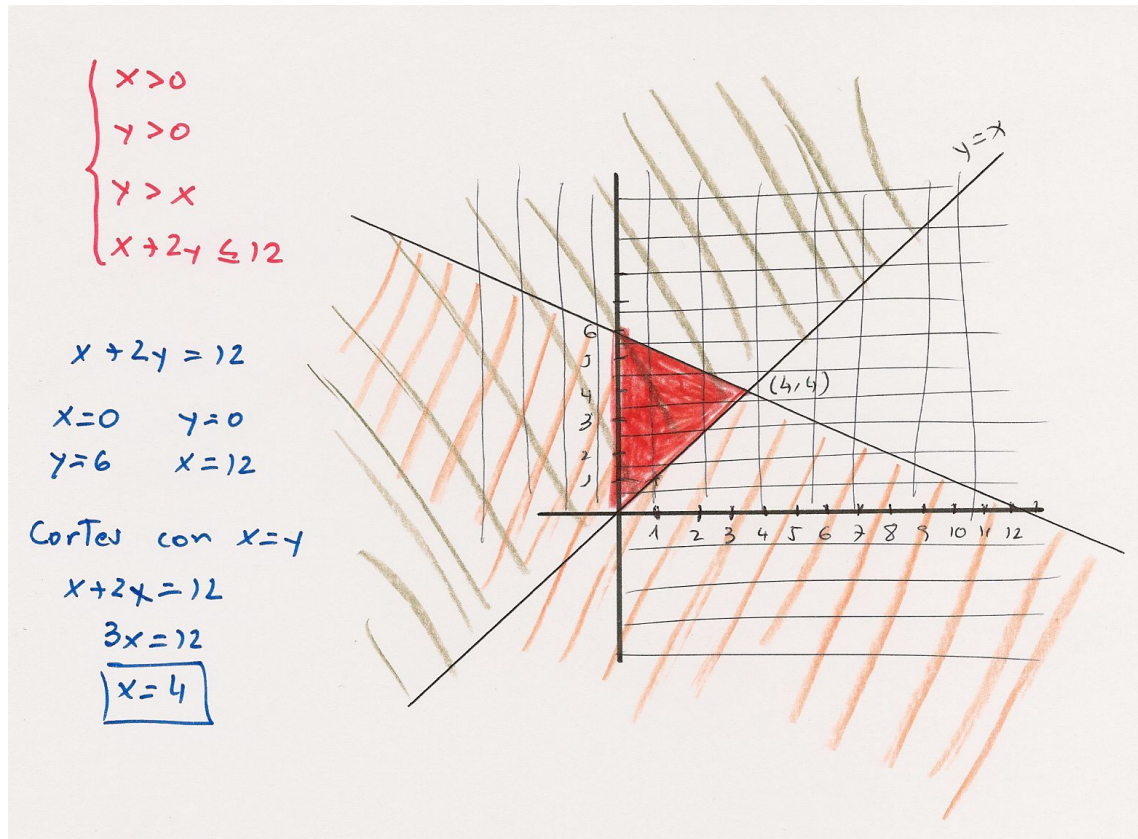 x>0
y>0
y>x
x+2y≤12
x+2y=12
x=0 y=0
y=6 x=12
Cortes con x=y
x+2x=12
3x=12
x=4
y=x
(4,4)
6
5
4
3
2
1
1 2 3 4 5 6 7 8 9 10 11 12